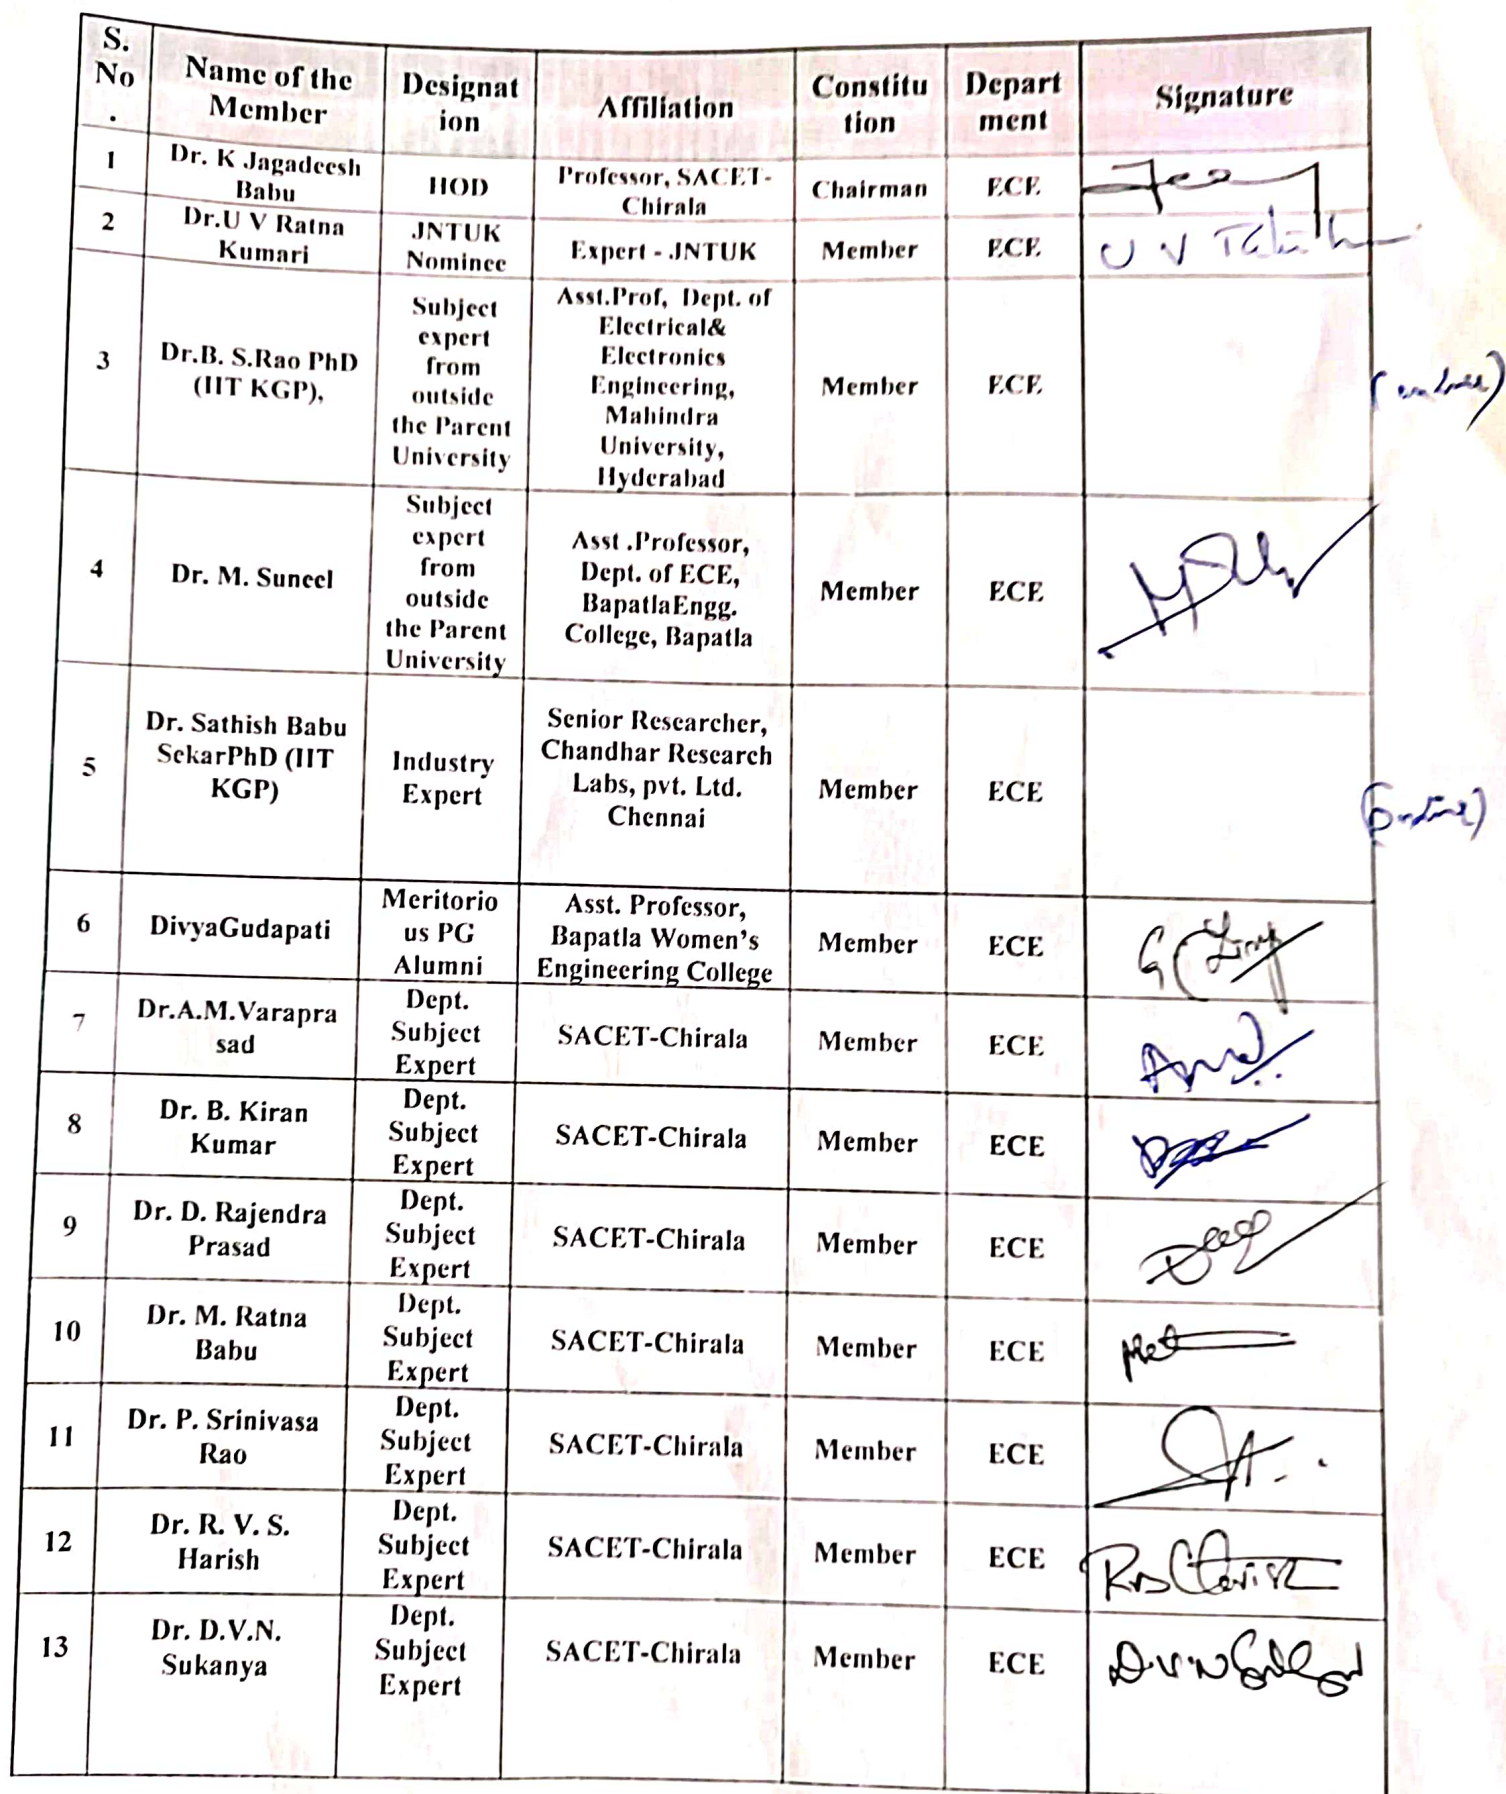 S. No . Name of the Member Designat ion Affiliation Constitu tion Depart ment Signature
1 Dr. K Jagadeesh Babu HOD Professor, SACET- Chirala Chairman ECE
2 Dr.U V Ratna Kumari JNTUK Nominee Expert - JNTUK Member ECE U V
3 Dr.B. S.Rao PhD (IIT KGP), Subject expert from outside the Parent University Asst.Prof, Dept. of Electrical& Electronics Engineering, Mahindra University, Hyderabad Member ECE
4 Dr. M. Suneel Subject expert from outside the Parent University Asst .Professor, Dept. of ECE, BapatlaEngg. College, Bapatla Member ECE
5 Dr. Sathish Babu SekarPhD (IIT KGP) Industry Expert Senior Researcher, Chandhar Research Labs, pvt. Ltd. Chennai Member ECE
6 DivyaGudapati Meritorio us PG Alumni Asst. Professor, Bapatla Women's Engineering College Member ECE
7 Dr.A.M.Varapra sad Dept. Subject Expert SACET-Chirala Member ECE
8 Dr. B. Kiran Kumar Dept. Subject Expert SACET-Chirala Member ECE
9 Dr. D. Rajendra Prasad Dept. Subject Expert SACET-Chirala Member ECE
10 Dr. M. Ratna Babu Dept. Subject Expert SACET-Chirala Member ECE
11 Dr. P. Srinivasa Rao Dept. Subject Expert SACET-Chirala Member ECE
12 Dr. R. V. S. Harish Dept. Subject Expert SACET-Chirala Member ECE
13 Dr. D.V.N. Sukanya Dept. Subject Expert SACET-Chirala Member ECE